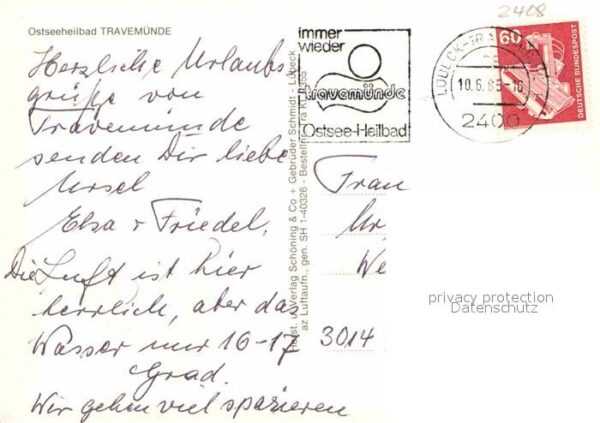 2428
Ostseeheilbad TRAVEMÜNDE
Herzliche Urlaubs
grüße von
Travemünde
senden Dir liebe
Ursel
Elsa + Friedel.
Die Luft ist hier
herrlich, aber das
Wasser nur 16-17
Grad.
Wir gehen viel spazieren
immer
wieder
travemünde
Ostsee-Heilbad
10.6.83-16
2400
60
DEUTSCHE BUNDESPOST
Verlag Schöning & Co + Gebrüder Schmidt - Lübeck
az Luftaufn., gen. SH 1-40326 - Bestellnr. Tra
Frau
Ur
We
3014
privacy protection
Datenschutz